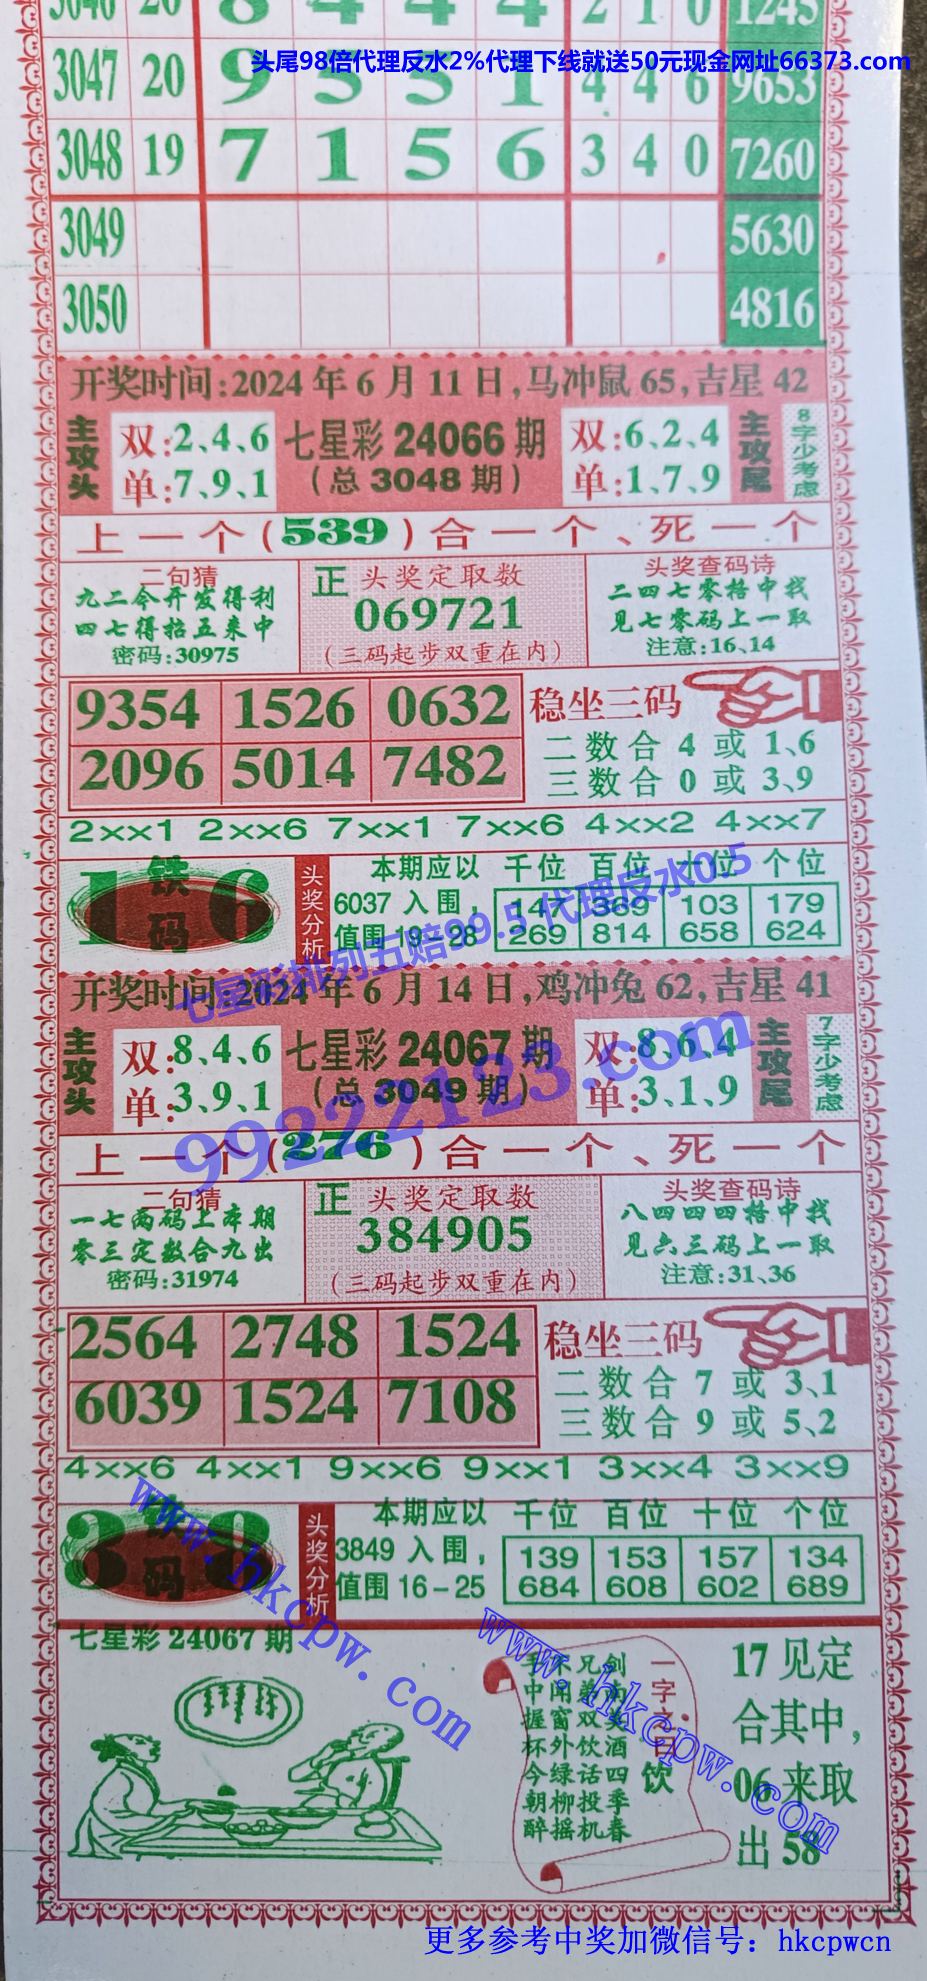 3046 20 8 4 4 4 2 1 0 1245
头尾98倍代理反水2%代理下线就送50元现金网址66373.com
3047 20 9 5 5 1 4 4 6 9653
3048 19 7 1 5 6 3 4 0 7260
3049 5630
3050 4816
开奖时间:2024年6月11日,马冲鼠65,吉星42
主攻头 双:2、4、6 七星彩24066期 双:6、2、4 主攻尾 8字少考虑
单:7、9、1 (总3048期) 单:1、7、9
上一个(539)合一个、死一个
二句猜 正 头奖定取数 头奖查码诗
九二今开发得利 069721 二四七零格中找
四七得拾五来中 (三码起步双重在内) 见七零码上一取
密码:30975 注意:16、14
9354 1526 0632 稳坐三码
2096 5014 7482 二数合4或1、6
三数合0或3、9
2××1 2××6 7××1 7××6 4××2 4××7
1 铁码 6 头奖分析 本期应以 千位 百位 十位 个位
6037入围, 147 369 103 179
值围19-28 269 814 658 624
七星彩排列五赔99.5 代理反水0.5
开奖时间:2024年6月14日,鸡冲兔62,吉星41
主攻头 双:8、4、6 七星彩24067期 双:8、6、4 主攻尾 7字少考虑
单:3、9、1 (总3049期) 单:3、1、9
99222123.com
上一个(276)合一个、死一个
二句猜 正 头奖定取数 头奖查码诗
一七两码上本期 384905 八四四四格中找
零三定数合九出 (三码起步双重在内) 见六三码上一取
密码:31974 注意:31、36
2564 2748 1524 稳坐三码
6039 1524 7108 二数合7或3、1
三数合9或5、2
4××6 4××1 9××6 9××1 3××4 3××9
3 铁码 8 头奖分析 本期应以 千位 百位 十位 个位
3849入围, 139 153 157 134
值围16-25 684 608 602 689
www.hkcpw.com
七星彩24067期
www.hkcpw.com
一字之曰 饮
剑南美酒四季春
兄弟双饮话投机
闻窗外绿柳摇
手中握杯今朝醉
17见定
合其中,
06来取
出58
更多参考中奖加微信号: hkcpwcn